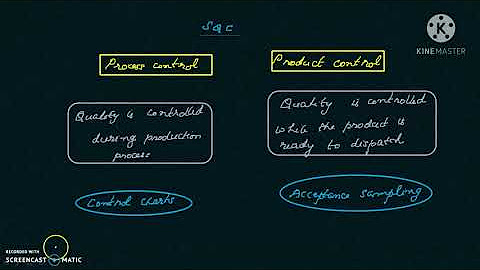 SQC
Process control
Product control
Quality is controlled
during production
process
Quality is controlled
while the product is
ready to dispatch
Control charts
Acceptance sampling
KINEMASTER
RECORDED WITH
SCREENCAST MATIC